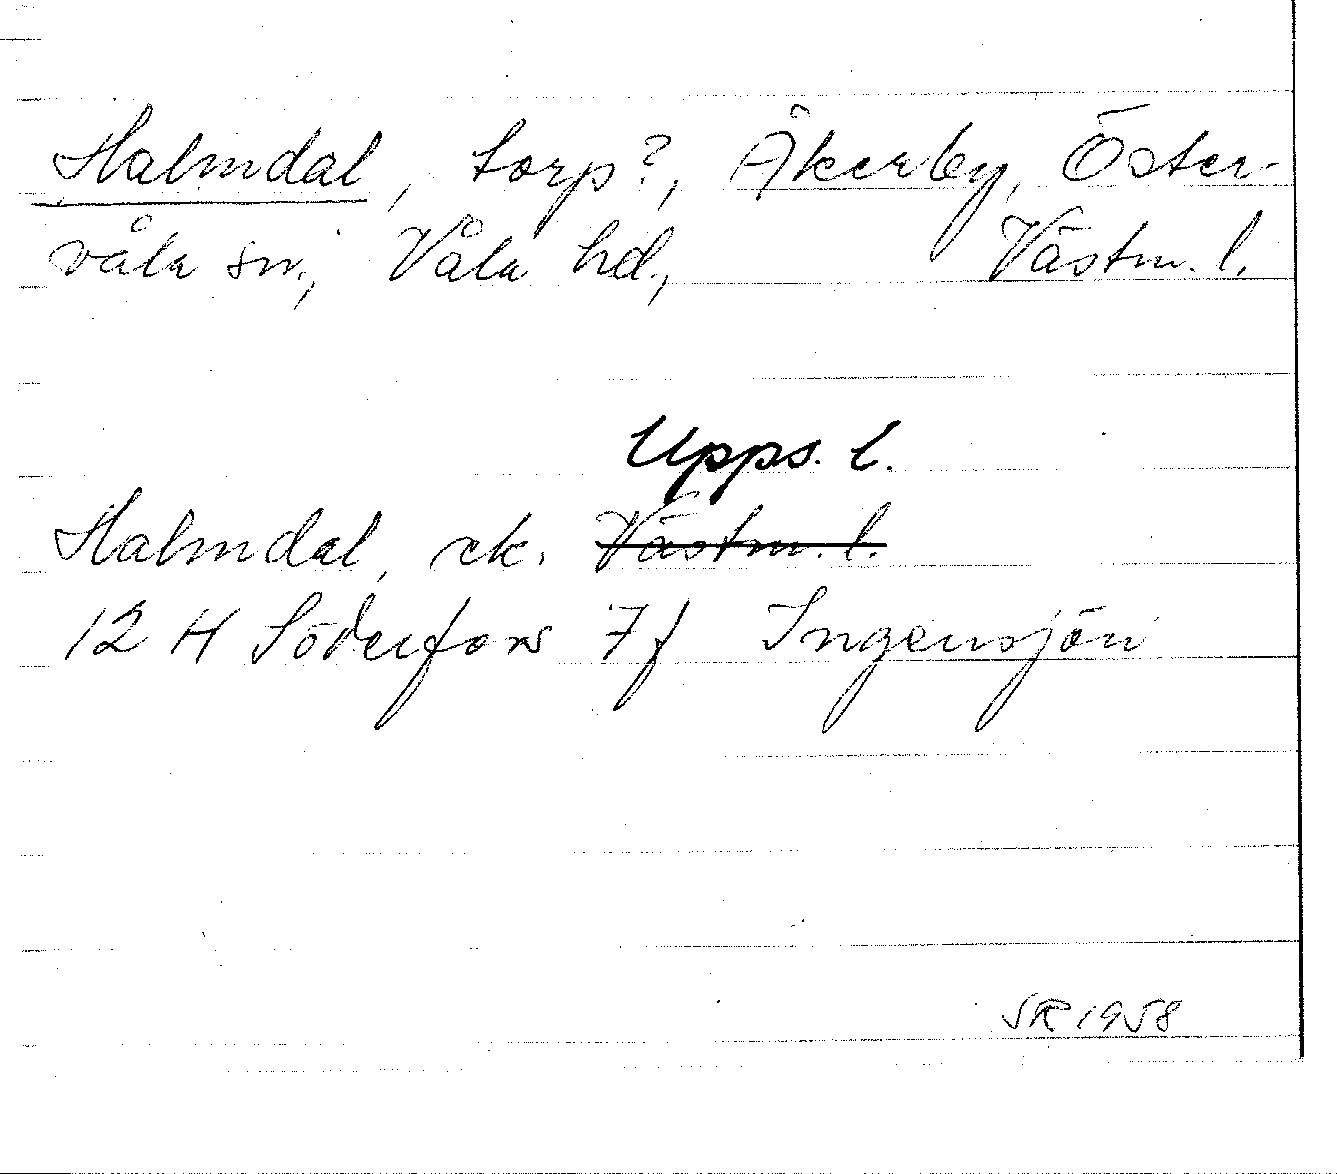 Halmdal, torp?, Åkerby, Öster-
våla sn, Våla hd., Västm. l.
Upps. l.
Halmdal, ek. Västm. l.
12 H Söderfors 7f Ingensjön
SR 1958